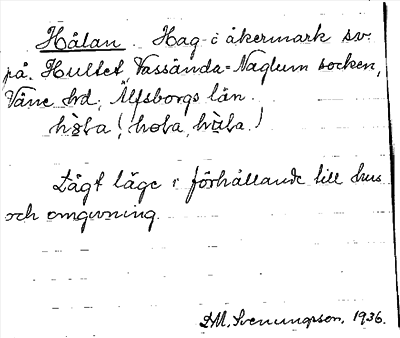 Hålan. Hag i åkermark sv.
på Hultet, Vassända-Naglum socken,
Väne hd, Älfsborgs län.
Lågt läge i förhållande till hus
och omgivning.
D.M. Svenungsson, 1936.